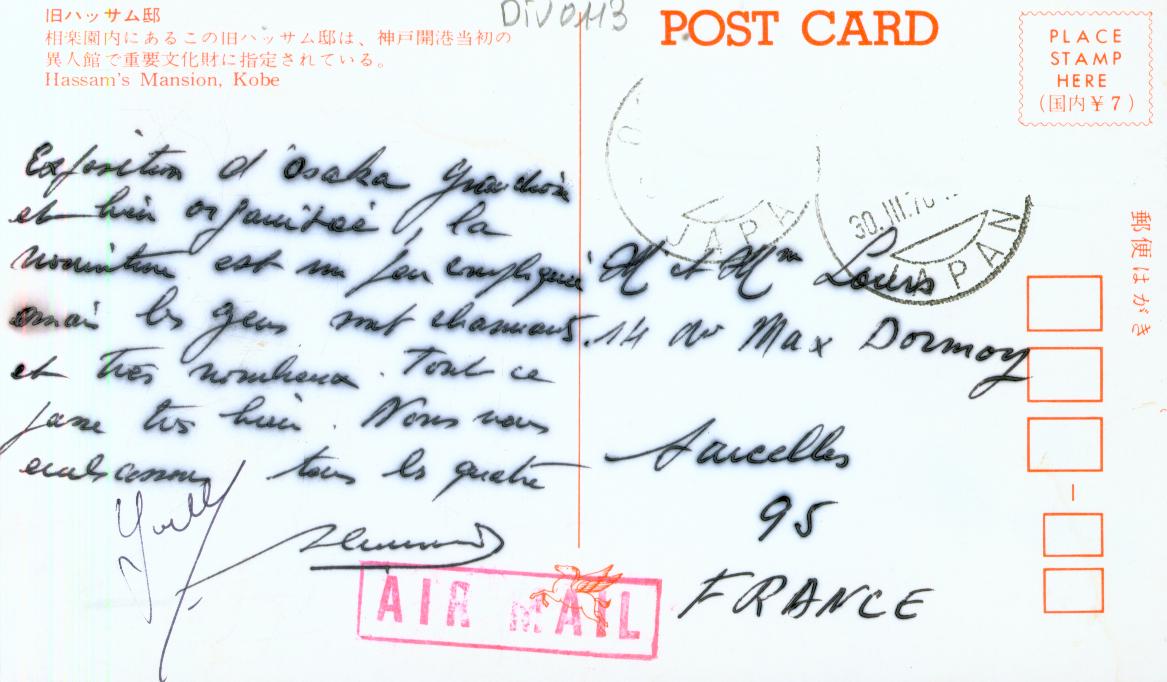 旧ハッサム邸
相楽園内にあるこの旧ハッサム邸は、神戸開港当初の
異人館で重要文化財に指定されている。
Hassam's Mansion, Kobe
DIV0113
POST CARD
PLACE
STAMP
HERE
(国内¥7)
郵便はがき
JAPAN
30.III.70
JAPAN
Exposition d'osaka grandiose
et bien organisée, la
nourriture est un peu compliquée
mais les gens sont charmants
et très nombreux. Tout ce
passe très bien. Nous vous
embrassons tous les quatre
M et Mm Louis
14 av Max Dormoy
Sarcelles
95
FRANCE
AIR MAIL